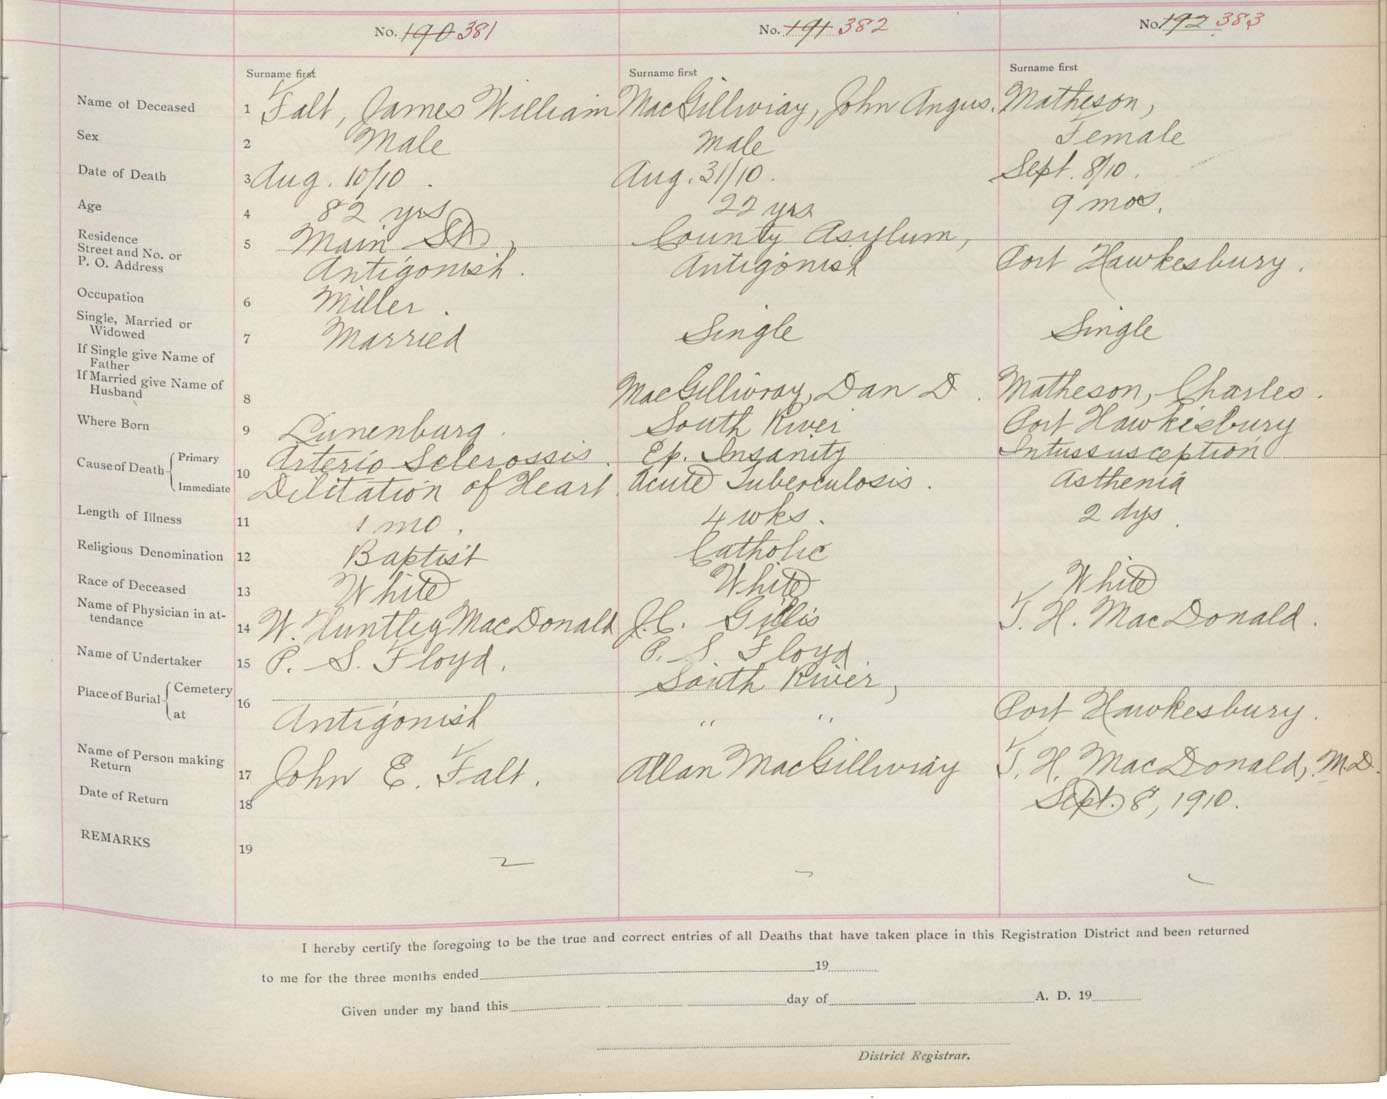 No. 190 381 No. 191 382 No. 192 383
Surname first Surname first Surname first
Name of Deceased 1 Falt, James William MacGillivray, John Angus. Matheson,
Sex 2 Male Male Female
Date of Death 3 Aug. 10/10. Aug. 31/10. Sept. 8/10.
Age 4 82 yrs 22 yrs 9 mos.
Residence
Street and No. or 5 Main St, County Asylum,
P. O. Address Antigonish. Antigonish Port Hawkesbury.
Occupation 6 Miller.
Single, Married or
Widowed 7 Married Single Single
If Single give Name of
Father
If Married give Name of
Husband 8 MacGillivray, Dan D. Matheson, Charles.
Where Born 9 Lunenburg. South River Port Hawkesbury
Cause of Death Primary 10 Arterio Sclerossis. Ep. Insanity Intussusception
Immediate Dilitation of Heart. Acute Tuberculosis. Asthenia
Length of Illness 11 1 mo. 4 wks. 2 dys.
Religious Denomination 12 Baptist Catholic
Race of Deceased 13 White White White
Name of Physician in at-
tendance 14 W. Huntley MacDonald J.C. Gillis T. H. MacDonald.
Name of Undertaker 15 P. S. Floyd. P. S. Floyd
Place of Burial Cemetery 16 South River,
at Antigonish " " Port Hawkesbury.
Name of Person making
Return 17 John E. Falt. Allan MacGillivray T. H. MacDonald, M.D.
Date of Return 18 Sept. 8, 1910.
REMARKS 19
I hereby certify the foregoing to be the true and correct entries of all Deaths that have taken place in this Registration District and been returned
to me for the three months ended 19
Given under my hand this day of A. D. 19
District Registrar.